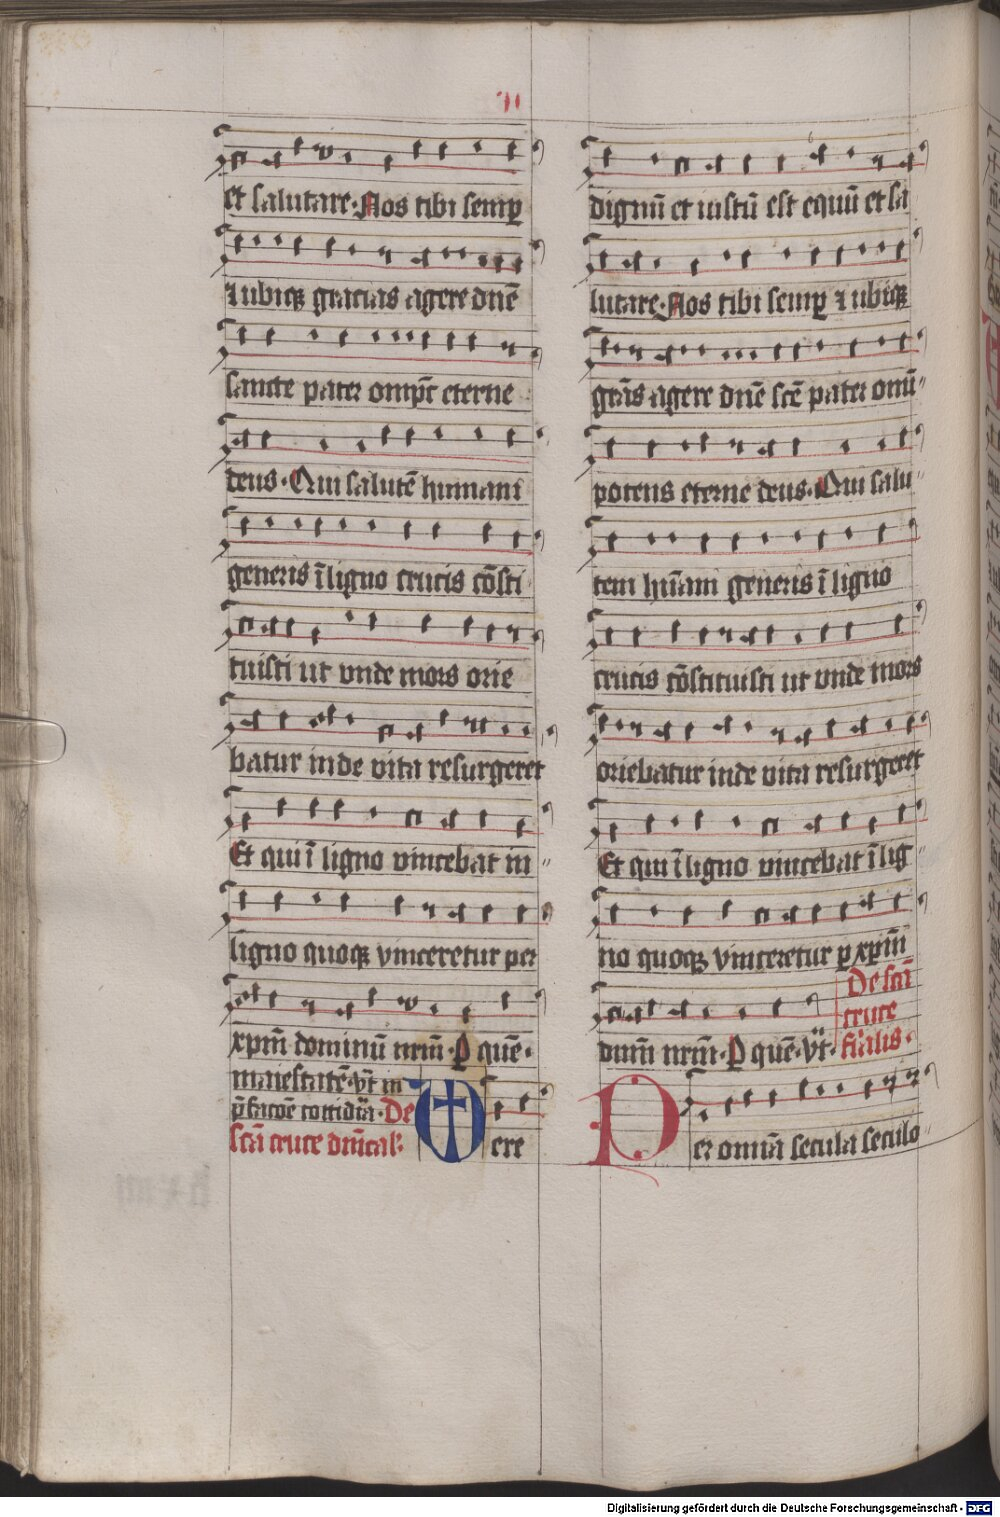 et salutare. Nos tibi semp̲
⁊ ubiq̲ꝫ gracias agere dn̄e
sancte pater omp̄s eterne
deus. Qui salutē humani
generis ī ligno crucis cōsti
tuisti ut vnde mors orie
batur inde vita resurgeret
Et qui ī ligno vincebat in
ligno quoqꝫ vinceretur per
xp̄m dominū nr̄m. P quē.
maiestatē. vt̄ in
p̄facōe cottidia. De
sc̄a cruce dn̄ical.
Vere
dignū et iustū est equū et sa
lutare. Nos tibi semp̲ ⁊ ubiqꝫ
grās agere dn̄e sc̄e pater om̄i
potens eterne deus. Qui salu
tem hūani generis ī ligno
crucis cōstituisti ut vnde mors
oriebatur inde vita resurgeret
Et qui ī ligno vincebat ī lig
no quoqꝫ vinceretur p xp̄m
dnm̄ nr̄m. P quē. vt̄.
De sc̄a
cruce
fi̅alis.
Per omīa secula seculo
Digitalisierung gefördert durch die Deutsche Forschungsgemeinschaft - DFG